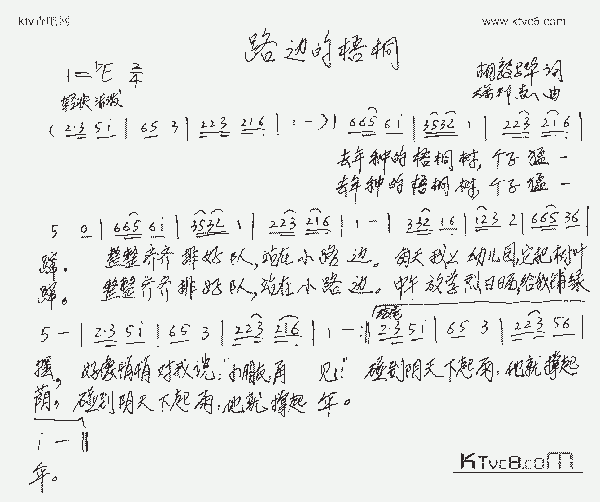 www.ktvc8.com
路边的梧桐
1=♭E 2/4
词
轻快 活泼
曲
( 2·3 5 i | 6 5 3 | 2 2 3 2 1 6 | 1 - ) | 6 6 5 6 i | 3 5 3 2 1 | 2 2 3 2 1 6 |
去年种的梧桐树,个子猛一
去年种的梧桐树,个子猛一
5 0 | 6 6 5 6 i | 3 5 3 2 1 | 2 2 3 2 1 6 | 1 - | 3 3 2 1 6 | 1 2 3 2 | 6 6 5 3 6 |
蹿。 整整齐齐排好队,站在小路边。每天我上幼儿园,它把树叶
蹿。 整整齐齐排好队,站在小路边。中午放学烈日晒,给我铺绿
5 - | 2·3 5 i | 6 5 3 | 2 2 3 2 1 6 | 1 - :‖ 2·3 5 i | 6 5 3 | 2 2 3 5 6 |
摇, 好像悄悄对我说:“小朋友再见!” 碰到阴天下起雨,他就撑起
荫, 碰到阴天下起雨,他就撑起 伞。
i - ‖
伞。
KTvc8.com